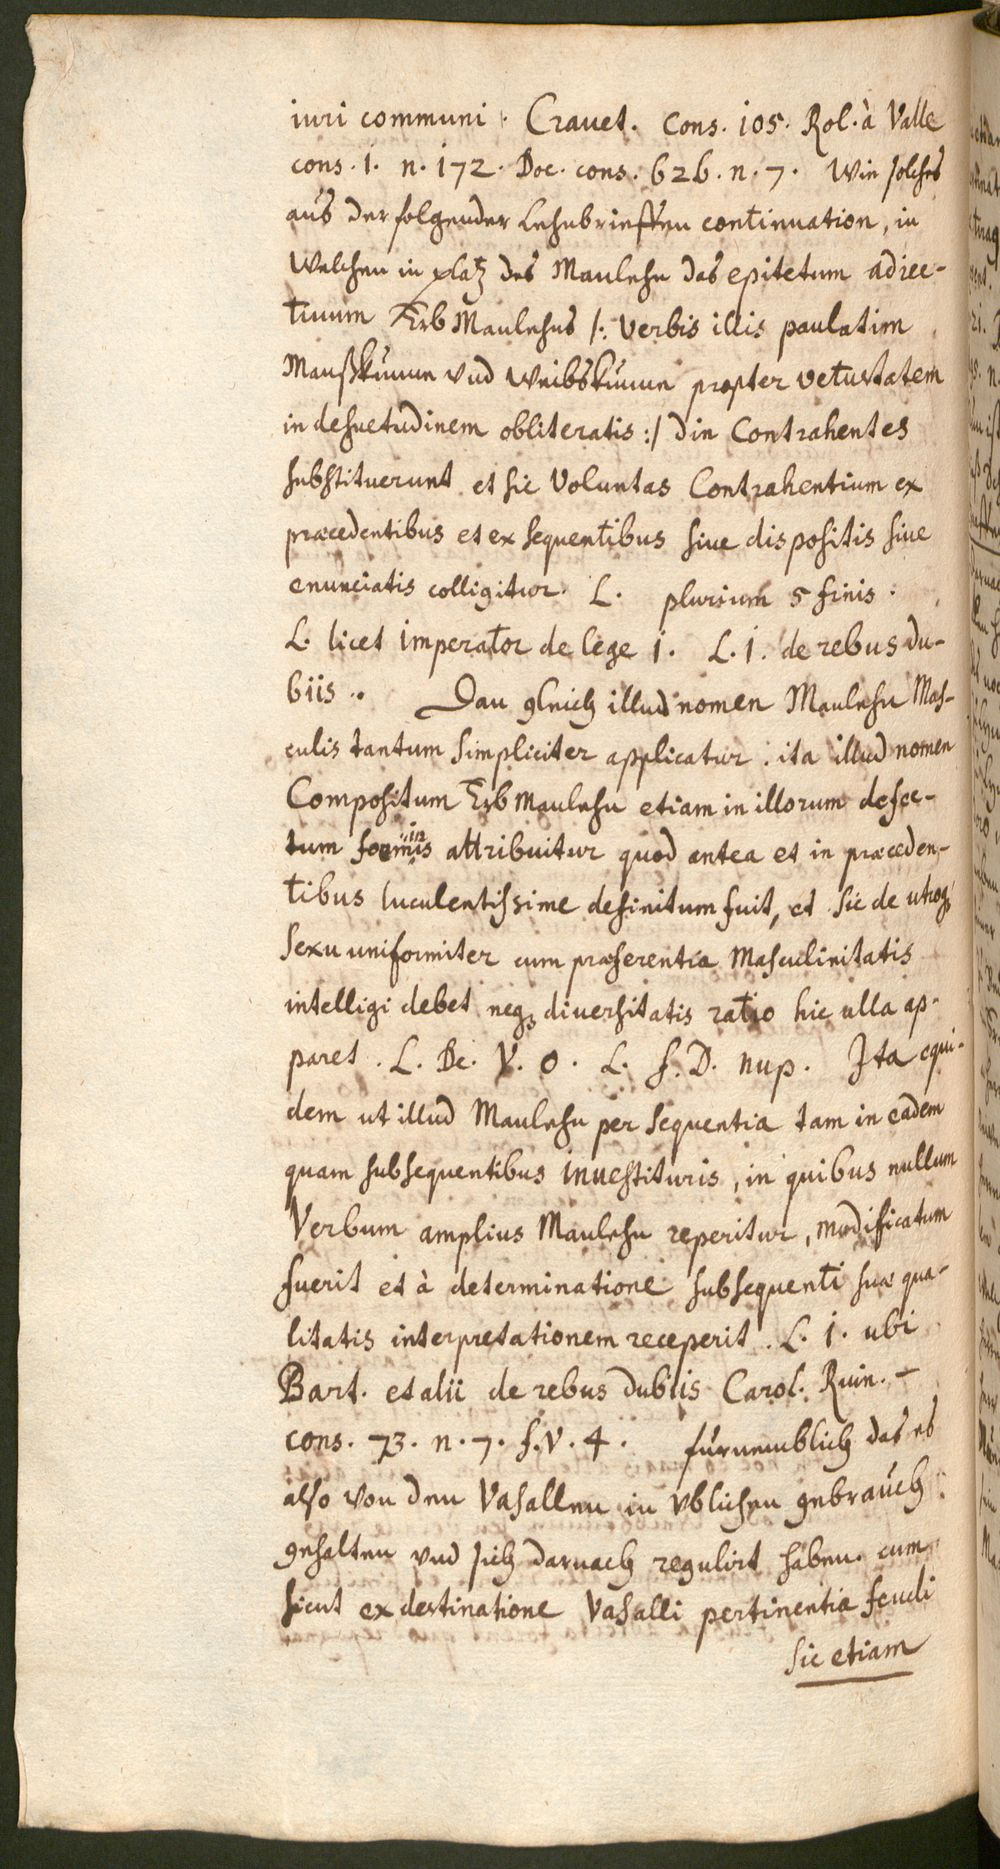 iuri communi . Crauet. Cons. 105. Rol. à Valle
cons. 1. n. 172. Dec. cons. 626. n. 7. Wie solches
aus der folgender Lehnbrieffen continuation, in
Welchen in platz des Manlehn das epitetum adiec-
tiuum Erb Manlehns /: verbis illis paulatim
Manßkunne vnd Weibskunne propter vetustatem
in desuetudinem obliteratis :/ die Contrahentes
substituerunt et sic Voluntas Contrahentium ex
præcedentibus et ex sequentibus siue dispositis siue
enunciatis colligitur. L. plurium 5 finis.
L. licet imperator de lege 1. L. 1. de rebus du-
biis . Dan gleich illud nomen Manlehn Mas-
culis tantum simpliciter applicatur . ita illud nomen
Compositum Erb Manlehn etiam in illorum defec-
tum foeminis attribuitur quod antea et in præceden-
tibus luculentissime definitum fuit, et sic de utroq3
sexu uniformiter cum præferentia Masculinitatis
intelligi debet neq3 diuersitatis ratio hic ulla ap-
paret . L. De. V. O. L. f. D. nup. Ita equi-
dem ut illud Manlehn per sequentia tam in eadem
quam subsequentibus inuestituris, in quibus nullum
Verbum amplius Manlehn reperitur, modificatum
fuerit et à determinatione subsequenti suæ qua-
litatis interpretationem receperit . L. 1. ubi
Bart. et alii de rebus dubiis Carol. Ruin. -
cons. 73. n. 7. f. V. 4. furnemblich das es
also von den Vasallen in vblichen gebrauch
gehalten vnd sich darnach regulirt haben. cum
sicut ex destinatione Vasalli pertinentia feudi
sic etiam